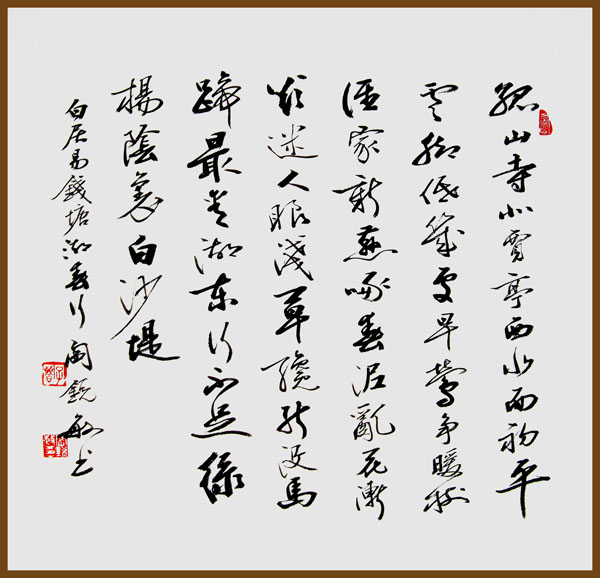 孤山寺北賈亭西水面初平
雲腳低幾處早鶯爭暖樹
誰家新燕啄春泥亂花漸
欲迷人眼淺草纔能沒馬
蹄最愛湖東行不足綠
楊陰裏白沙堤
白居易錢塘湖春行 銳敏书